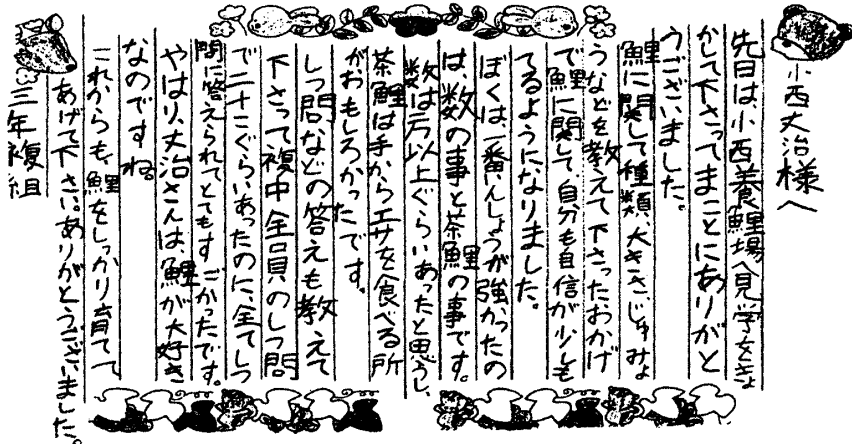 小西丈治様へ
先日は、小西養鯉場へ見学をきょ
かして下さってまことにありがと
うございました。
鯉に関して種類、大きさ、じゅみょ
うなどを教えて下さったおかげ
で鯉に関して、自分も自信が少しも
てるようになりました。
ぼくは、一番いんしょうが強かったの
は、数の事と茶鯉の事です。
数は万以上ぐらいあったと思うし、
茶鯉は手からエサを食べる所
がおもしろかったです。
しつ問などの答えも教えて
下さって複中全員のしつ問
で二十こぐらいあったのに、全てしつ
問に答えられてとてもすごかったです。
やはり、丈治さんは、鯉が大好き
なのですね。
これからも、鯉をしっかり育てて
あげて下さい。ありがとうございました。
三年複組